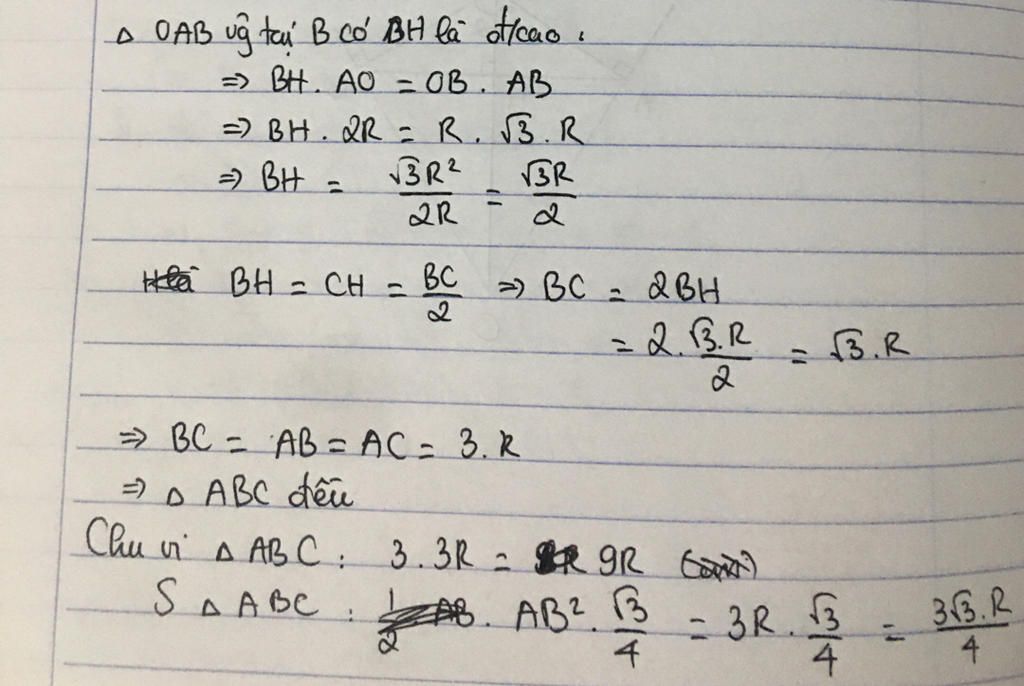 Δ OAB vg tại B có BH là đ/cao :
⇒ BH . AO = OB . AB
⇒ BH . 2R = R . √3 . R
⇒ BH = √3R² / 2R = √3R / 2
BH = CH = BC / 2 ⇒ BC = 2BH
= 2 . √3.R / 2 = √3 . R
⇒ BC = AB = AC = 3 . R
⇒ Δ ABC đều
Chu vi Δ ABC : 3 . 3R = 9R
S Δ ABC : . AB² . √3 / 4 = 3R . √3 / 4 = 3√3 . R / 4